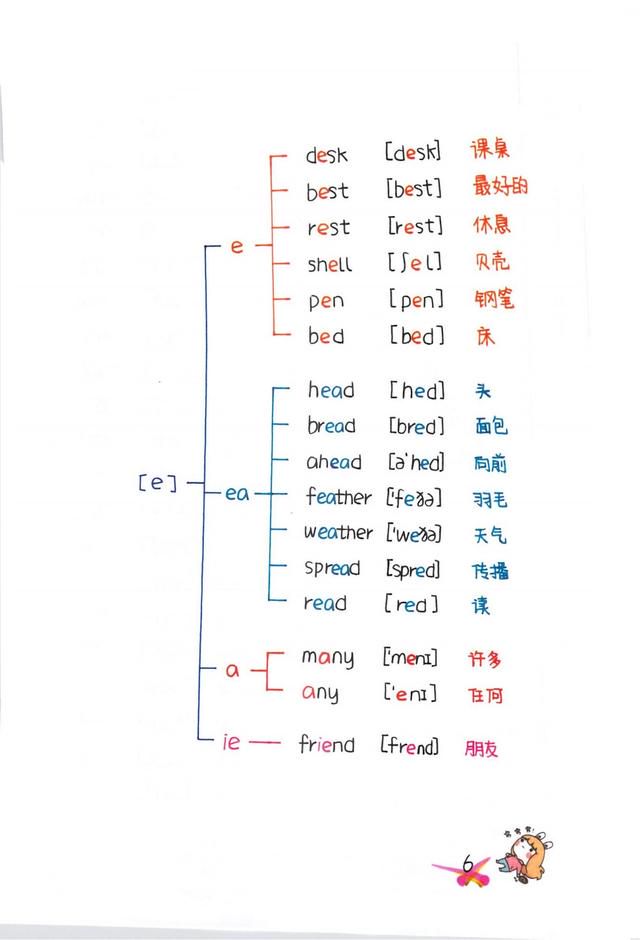 desk [desk] 课桌
best [best] 最好的
rest [rest] 休息
e
shell [ʃel] 贝壳
pen [pen] 钢笔
bed [bed] 床
head [hed] 头
bread [bred] 面包
ahead [ə'hed] 向前
[e]
ea
feather ['feðə] 羽毛
weather ['weðə] 天气
spread [spred] 传播
read [red] 读
many ['menɪ] 许多
a
any ['enɪ] 任何
ie friend [frend] 朋友
6